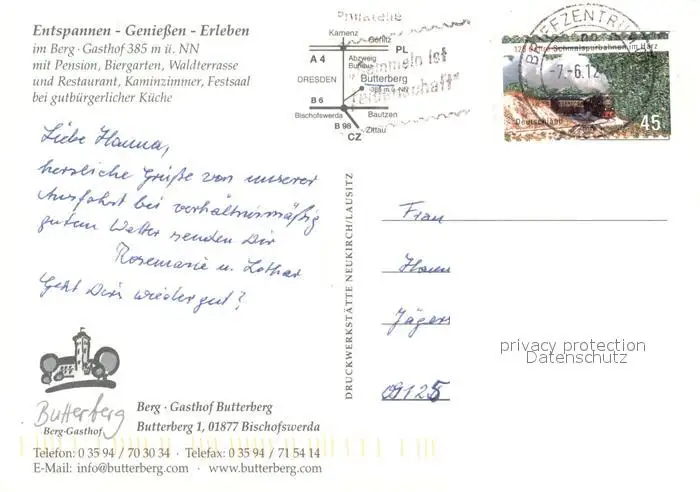 Entspannen - Genießen - Erleben
im Berg · Gasthof 385 m ü. NN
mit Pension, Biergarten, Waldterrasse
und Restaurant, Kaminzimmer, Festsaal
bei gutbürgerlicher Küche
Philatelie
Sammeln ist
Leidenschaft"
Kamenz
Görlitz
A 4
PL
Abzweig
Burkau
DRESDEN
Butterberg
385 m ü. NN
B 6
Bischofswerda
Bautzen
B 98
Zittau
CZ
BRIEFZENTRUM
-7.-6.12
125 Jahre Schmalspurbahnen im Harz
Deutschland
45
Liebe Hanna,
herzliche Grüße von unserer
Ausfahrt bei verhältnismäßig
gutem Wetter senden Dir
Rosemarie u. Lothar
Geht Dir's wieder gut?
DRUCKWERKSTÄTTE NEUKIRCH/LAUSITZ
Frau
Hann
Jäger
09125
privacy protection
Datenschutz
Butterberg
Berg-Gasthof
Berg · Gasthof Butterberg
Butterberg 1, 01877 Bischofswerda
Telefon: 0 35 94 / 70 30 34 · Telefax: 0 35 94 / 71 54 14
E-Mail: info@butterberg.com · www.butterberg.com